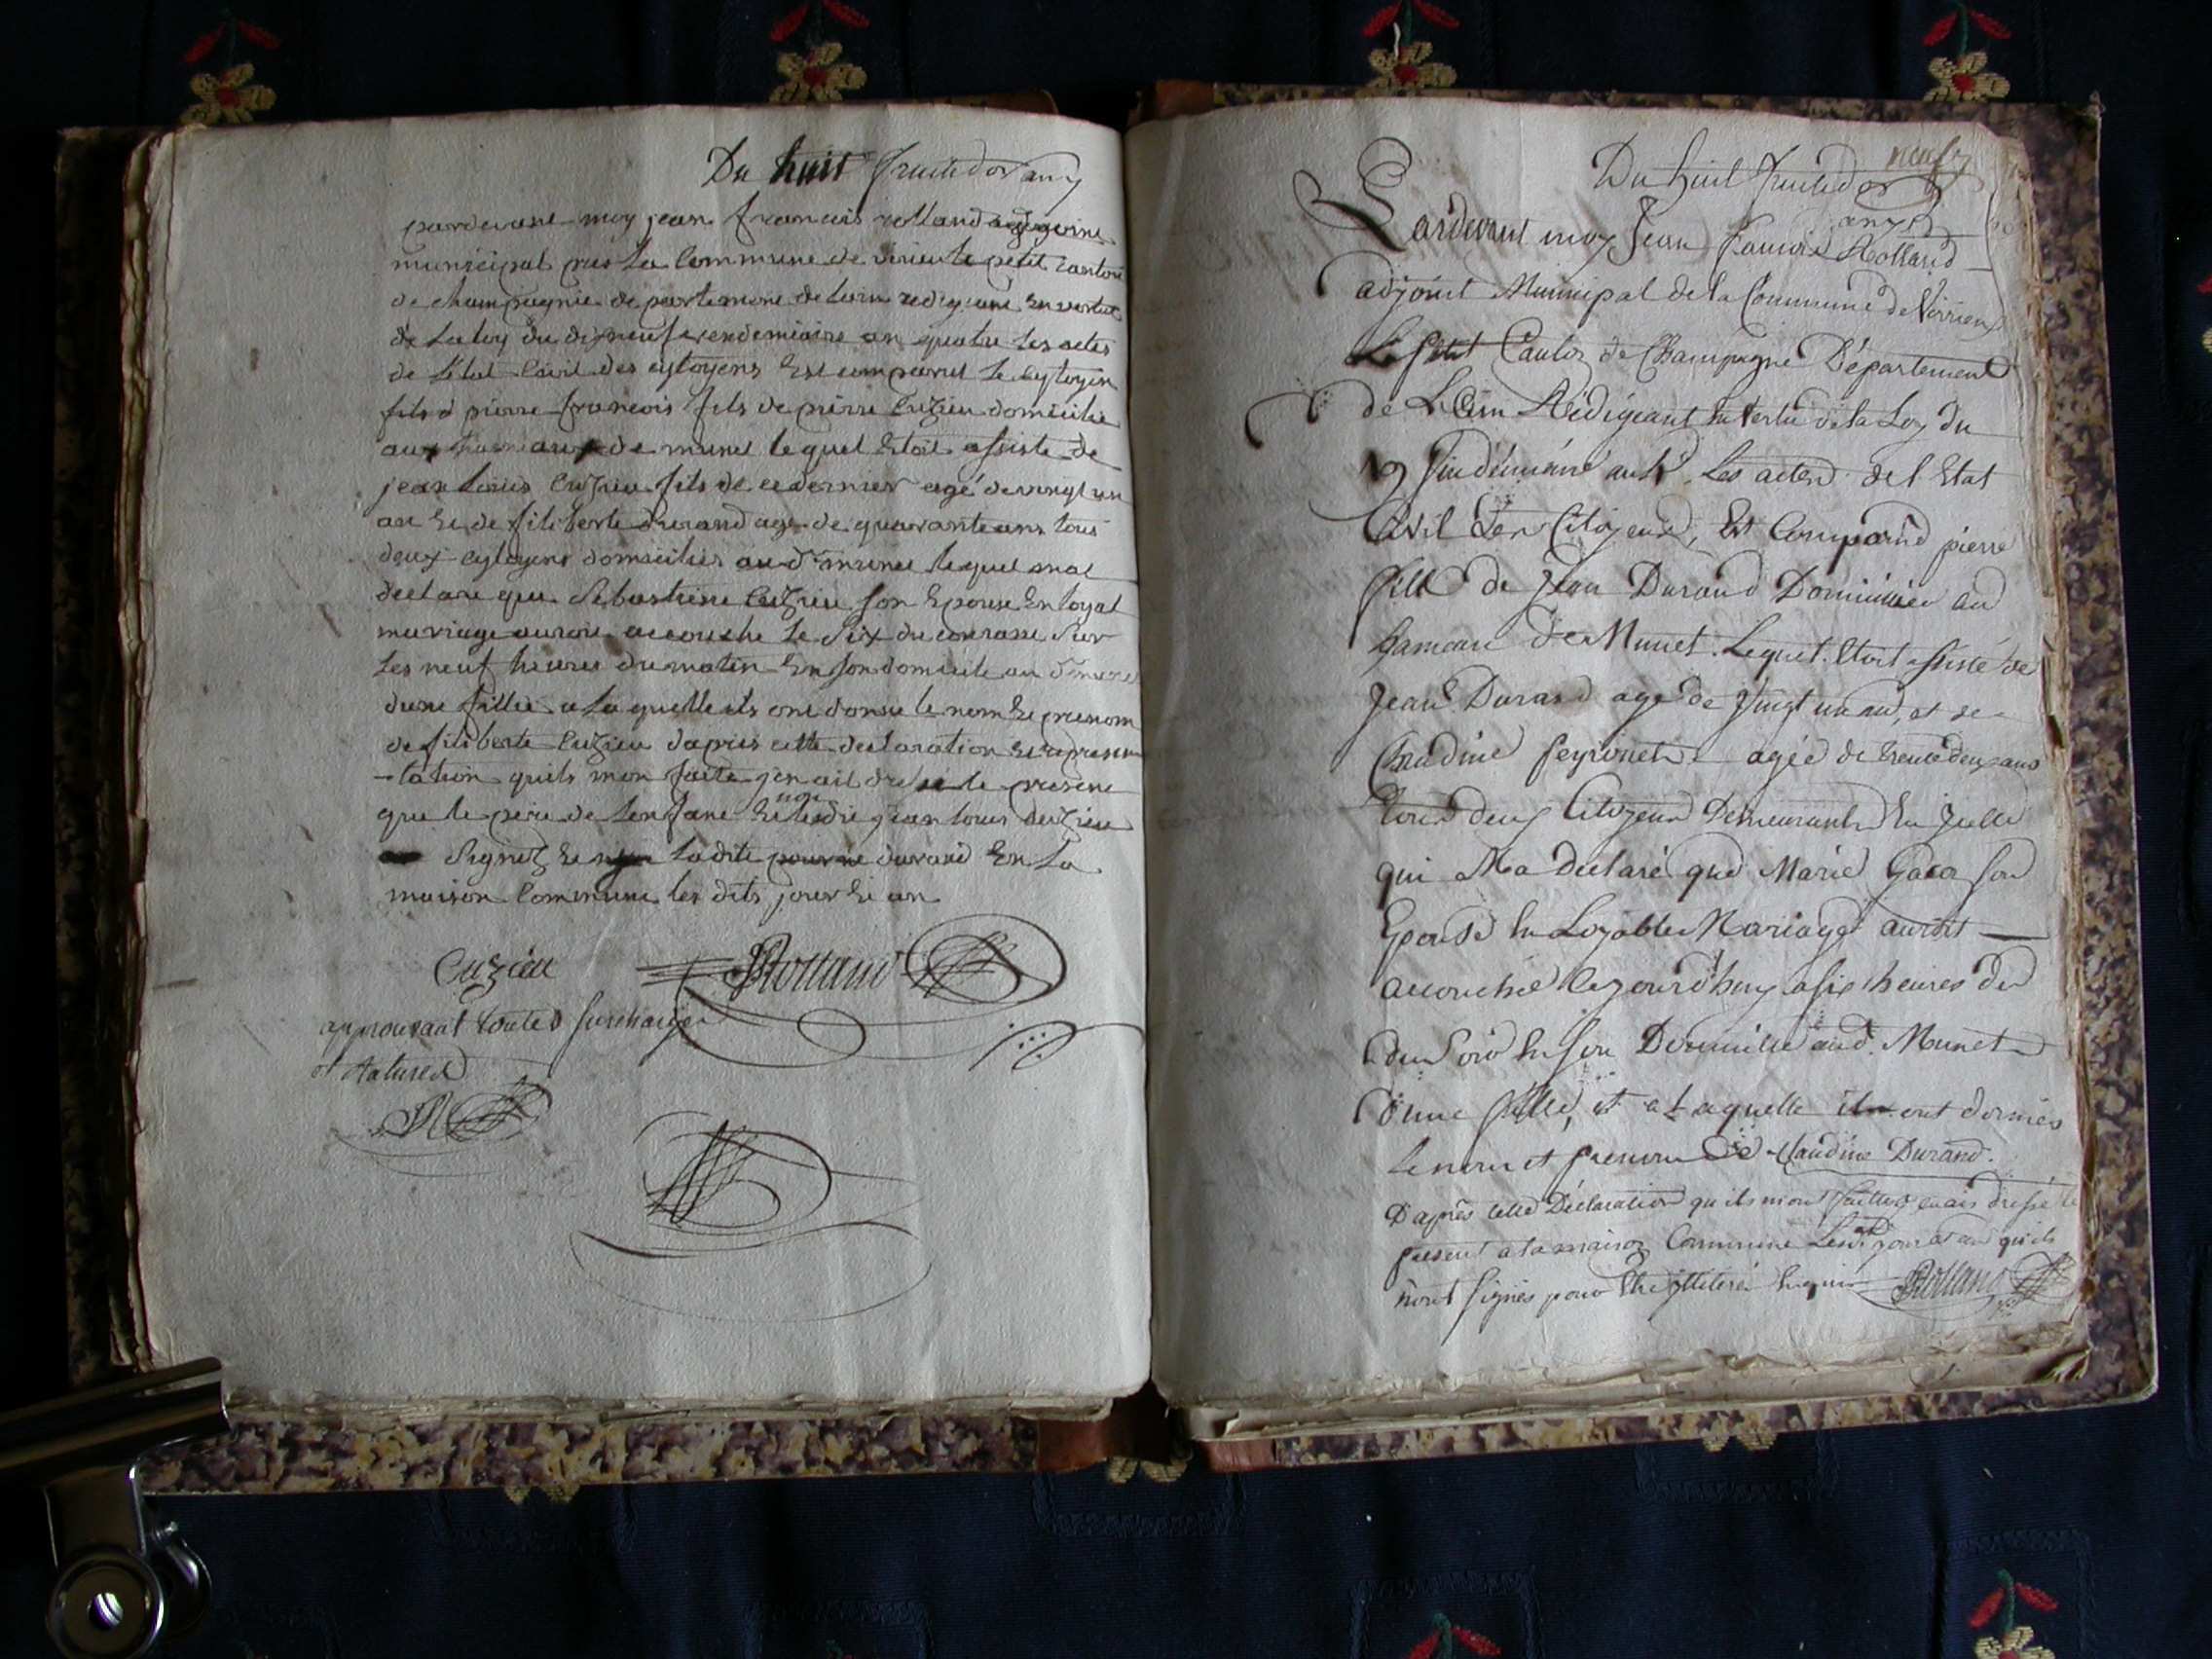 Du huit fructidor an 7
pardevant moy jean francois rolland
municipal pres la Commune de virieu le petit canton
de champagnie departement de lain redigeant En vertu
de la loy du dixneuf vendemiaire an quatre les actes
de letat Civil des cytoyens Est comparut le cytoyen
fils d pierre francois fils de pierre Cuzieu domicilie
aux de munet lequel Etoit assiste de
jean louis Cuzieu fils de ce dernier agé de vingt un
an Et de filiberte durand age de quarante ans tous
deux cytoyens domicilies au dt munet lequel mat
declare que Sebastiene Cuzieu son Epouse En loyal
mariage auroit accouche le Six du courant Sur
les neuf heures du matin En son domicile au dt munet
dune fillie a la quelle ils ont donne le nom Et prenom
de filiberte Cuzieu dapres cette declaration Et represen
-tation quils mon faite jen ait dressé le present
que le pere de lenfant Et non jean louis Cuzieu
Signez Et ladite durand En la
maison Commune les dits jour Et an
Cuzieu Rolland
approuvant toutes surcharges
et Ratures
R
neuf
Du huit fructidor
an 7
Pardevant moy Jean francois Rolland
adjoint Municipal de la Commune de Virrieux
Le petit Canton de Champagne Département
de L'Ain Rédigeant En Vertu de la Loy du
19 Vindémiaire an 4e Les actes de l'Etat
Civil des Citoyens, Est Comparud pierre
fils de Jean Durand Domicilié au
hameau de Munet. Lequel Etoit assisté de
Jean Durand agé de Vingt un ans, et de
Claudine peyronet agée de trente deux ans
tous deux Citoyens Demeurants En Jcelle
qui Ma déclaré que Marie son
Epouse En Loyable Mariage auroit
accouchée cejourd'huy a six heures de
du Soir En son Domicile aud. Munet
d'une fille, et a Laquelle ils ont donnés
Le nom et prenom de Claudine Durand.
D'après cette Déclaration qu'ils m'ont faitte j'en ais dressé le
présent a la maison Commune Lesdt. jour et an qu'ils
n'ont signés pour Etre jlliteré Enquis Rolland